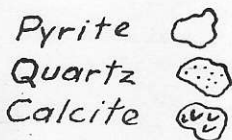 Pyrite
Quartz
Calcite